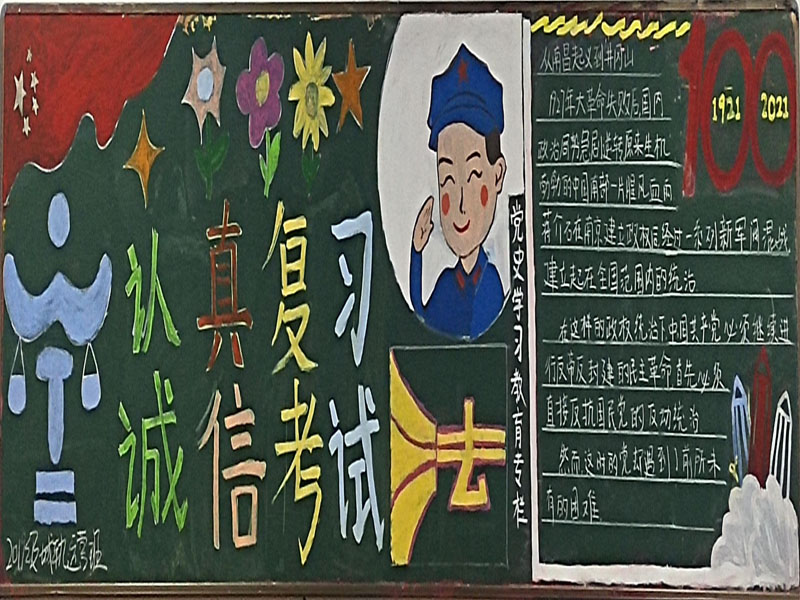 认真复习
诚信考试
法
党史学习教育专栏
100
1921 2021
从南昌起义到井冈山
1927年大革命失败后国内
政治局势急剧逆转原来生机
勃勃的中国南部一片腥风血雨
蒋介石在南京建立政权后经过一系列新军阀混战
建立起在全国范围内的统治
在这样的政权统治下中国共产党必须继续进
行反帝反封建的民主革命首先必须
直接反抗国民党的反动统治
然而这时的党却遇到了前所未
有的困难